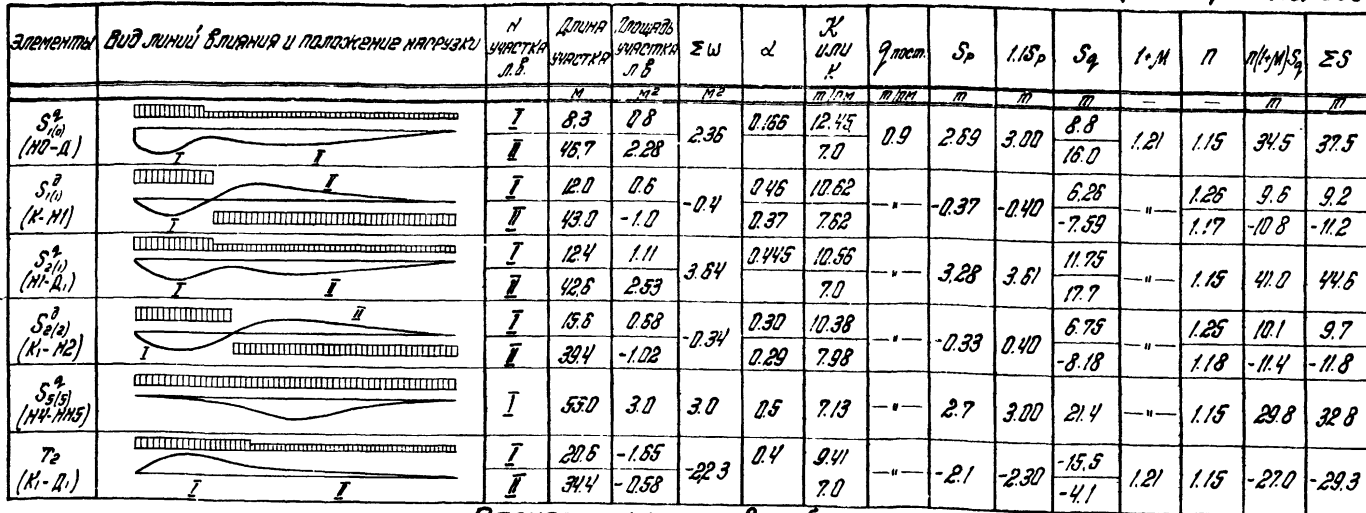 Элементы Вид линий влияния и положение нагрузки N участка л.в. Длина участка Площадь участка л в Σω α K или K q пост. Sp 1.1Sp Sq 1+М П n(1+М)Sq ΣS
м м² м² т/п.м т/пм т т т — — т т
S₁₍₀₎^q (Н0-Д) I 8,3 0 8 2.36 0.166 12.45 0.9 2.69 3.00 8.8 1.21 1.15 34.5 37.5
I II II 46,7 2.28 7.0 16.0
S₁₍₁₎^д (К-Н1) II I 12.0 0.6 -0.4 0.46 10.62 —"— -0.37 -0.40 6.26 —"— 1.26 9.6 9.2
I II 43.0 -1.0 0.37 7.62 -7.59 1.17 -10 8 -11.2
S₂₍₁₎^q (Н1-Д₁) I 12.4 1.11 3.64 0.445 10.56 —"— 3.28 3.61 11.75 —"— 1.15 41.0 44.6
I II II 42,6 2.53 7.0 17.7
S₂₍₂₎^д (К₁-Н2) II I 15.6 0.68 -0.34 0.30 10.38 —"— -0.33 0.40 6.75 —"— 1.25 10.1 9.7
I II 39.4 -1.02 0.29 7.98 -8.18 1.18 -11.4 -11.8
S₅₍₅₎^q (Н4-НН5) I 55.0 3.0 3.0 0.5 7.13 —"— 2.7 3.00 21.4 —"— 1.15 29.8 32 8
T₂ (К₁-Д₁) I 20.6 -1.65 -22.3 0.4 9.41 —"— -2.1 -2.30 -15.5 1.21 1.15 -27.0 -29.3
I II II 34.4 -0.58 7.0 -4.1